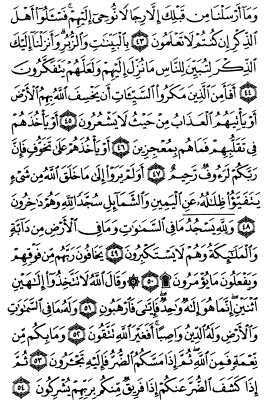 وَمَآ أَرْسَلْنَا مِن قَبْلِكَ إِلَّا رِجَالًا نُّوحِىٓ إِلَيْهِمْ فَسْـَٔلُوٓا۟ أَهْلَ
ٱلذِّكْرِ إِن كُنتُمْ لَا تَعْلَمُونَ ﴿٤٣﴾ بِٱلْبَيِّنَـٰتِ وَٱلزُّبُرِ وَأَنزَلْنَآ إِلَيْكَ
ٱلذِّكْرَ لِتُبَيِّنَ لِلنَّاسِ مَا نُزِّلَ إِلَيْهِمْ وَلَعَلَّهُمْ يَتَفَكَّرُونَ
﴿٤٤﴾ أَفَأَمِنَ ٱلَّذِينَ مَكَرُوا۟ ٱلسَّيِّـَٔاتِ أَن يَخْسِفَ ٱللَّهُ بِهِمُ ٱلْأَرْضَ
أَوْ يَأْتِيَهُمُ ٱلْعَذَابُ مِنْ حَيْثُ لَا يَشْعُرُونَ ﴿٤٥﴾ أَوْ يَأْخُذَهُمْ
فِى تَقَلُّبِهِمْ فَمَا هُم بِمُعْجِزِينَ ﴿٤٦﴾ أَوْ يَأْخُذَهُمْ عَلَىٰ تَخَوُّفٍ فَإِنَّ
رَبَّكُمْ لَرَءُوفٌ رَّحِيمٌ ﴿٤٧﴾ أَوَلَمْ يَرَوْا۟ إِلَىٰ مَا خَلَقَ ٱللَّهُ مِن شَىْءٍ
يَتَفَيَّؤُا۟ ظِلَـٰلُهُۥ عَنِ ٱلْيَمِينِ وَٱلشَّمَآئِلِ سُجَّدًا لِّلَّهِ وَهُمْ دَٰخِرُونَ
﴿٤٨﴾ وَلِلَّهِ يَسْجُدُ مَا فِى ٱلسَّمَـٰوَٰتِ وَمَا فِى ٱلْأَرْضِ مِن دَآبَّةٍ
وَٱلْمَلَـٰٓئِكَةُ وَهُمْ لَا يَسْتَكْبِرُونَ ﴿٤٩﴾ يَخَافُونَ رَبَّهُم مِّن فَوْقِهِمْ
وَيَفْعَلُونَ مَا يُؤْمَرُونَ ۩ ﴿٥٠﴾ وَقَالَ ٱللَّهُ لَا تَتَّخِذُوٓا۟ إِلَـٰهَيْنِ
ٱثْنَيْنِ إِنَّمَا هُوَ إِلَـٰهٌ وَٰحِدٌ فَإِيَّـٰىَ فَٱرْهَبُونِ ﴿٥١﴾ وَلَهُۥ مَا فِى ٱلسَّمَـٰوَٰتِ
وَٱلْأَرْضِ وَلَهُ ٱلدِّينُ وَاصِبًا أَفَغَيْرَ ٱللَّهِ تَتَّقُونَ ﴿٥٢﴾ وَمَا بِكُم مِّن
نِّعْمَةٍ فَمِنَ ٱللَّهِ ثُمَّ إِذَا مَسَّكُمُ ٱلضُّرُّ فَإِلَيْهِ تَجْـَٔرُونَ ﴿٥٣﴾ ثُمَّ
إِذَا كَشَفَ ٱلضُّرَّ عَنكُمْ إِذَا فَرِيقٌ مِّنكُم بِرَبِّهِمْ يُشْرِكُونَ ﴿٥٤﴾